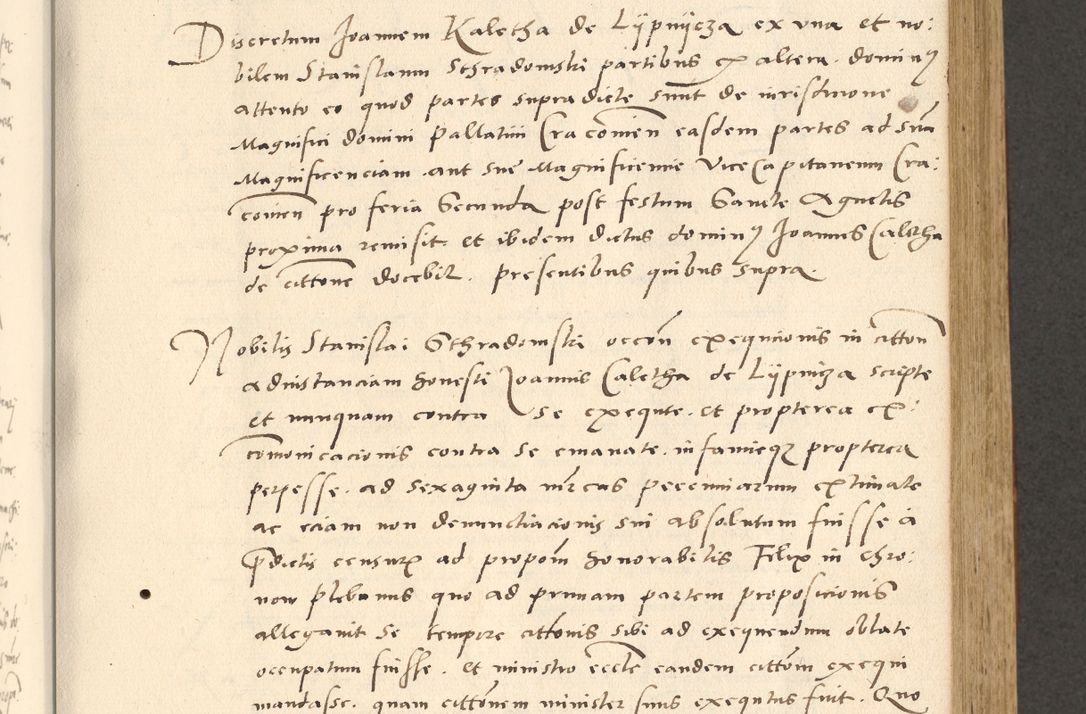 Discretum Joannem Kaletha de Lÿpnÿcza ex una et no:
bilem Stanislaum Sthradomski partibus ex altera. dominus
attento eo quod partes supra dicte sunt de iurisdicione
Magnifici domini Pallatini Cracovien easdem partes ad suam
Magnificenciam aut sue Magnificencie ViceCapitaneum Cra:
covien pro feria Secunda post festum Sancte Agnetis
proxima remisit et ibidem dictus dominus Joannes Caletha
de cittone docebit. presentibus quibus supra.
Nobilis Stanislai Sthradomski occon exequcionis in citton
ad instanciam honesti Joannis Caletha de Lÿpnicza scripte
et nunquam contra se exequte. et propterea ex:
comonicacionis contra se emanate. infamieque propterea
perpesse. ad sexaginta mrcas pecuniarum extimate
ac eciam non denunctiacionis sui absolutum fuisse a
predictis censuris ad propom honorabilis Felix in Chro:
now plebanus quo ad primam partem proposicionis
allegavit se tempore cittonis sibi ad exequendum oblate
occupatum fuisse. et ministro eccle eandem cittom exequi
mandasse. quam cittonem minister suus exequtus fuit. Quo